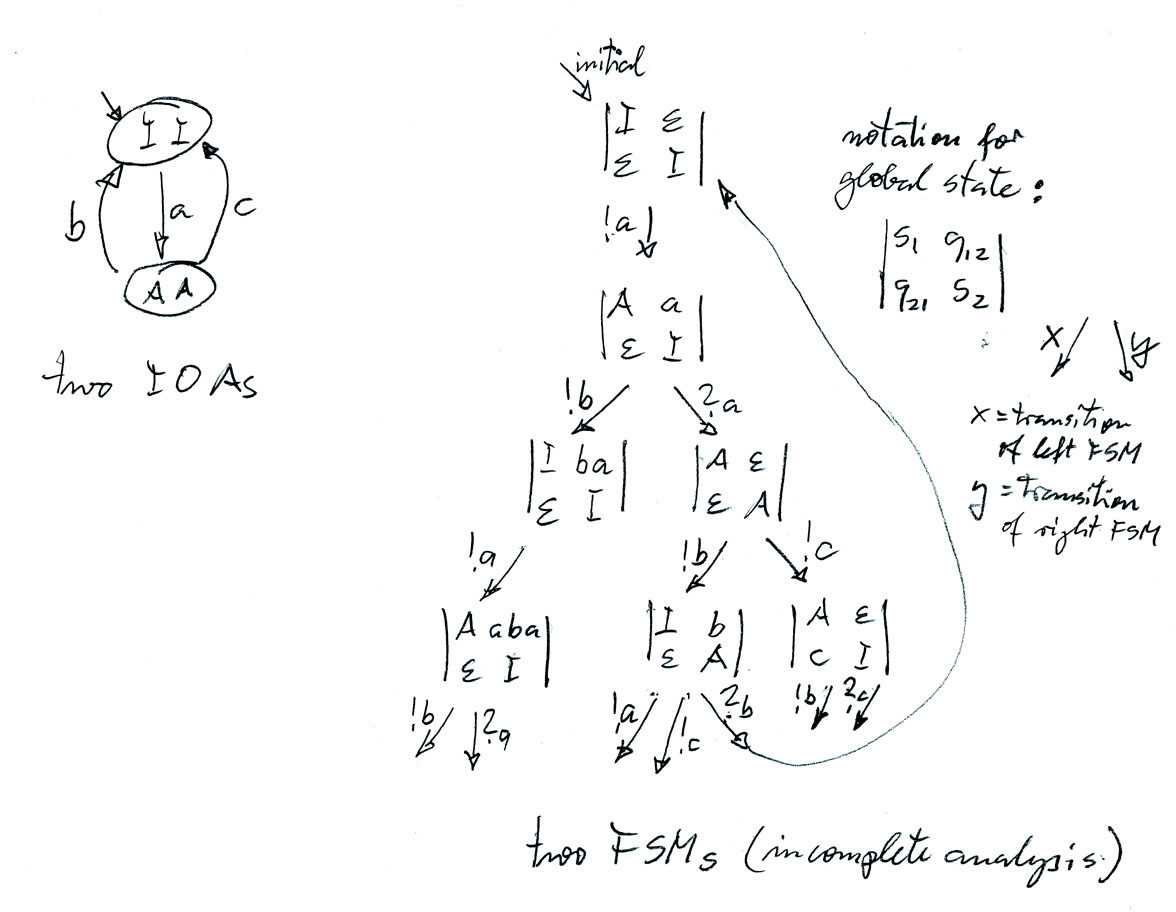 initial
I I
b
a
c
A A
two IOAs
|I ε|
|ε I|
!a
|A a|
|ε I|
!b
?a
|I ba|
|ε I|
|A ε|
|ε A|
!a
!b
!c
|A aba|
|ε I|
|I b|
|ε A|
|A ε|
|c I|
!b
?a
!a
!c
?b
!b
?c
notation for
global state:
|S₁ q₁₂|
|q₂₁ S₂|
x
y
x = transition
of left FSM
y = transition
of right FSM
two FSMs (incomplete analysis)